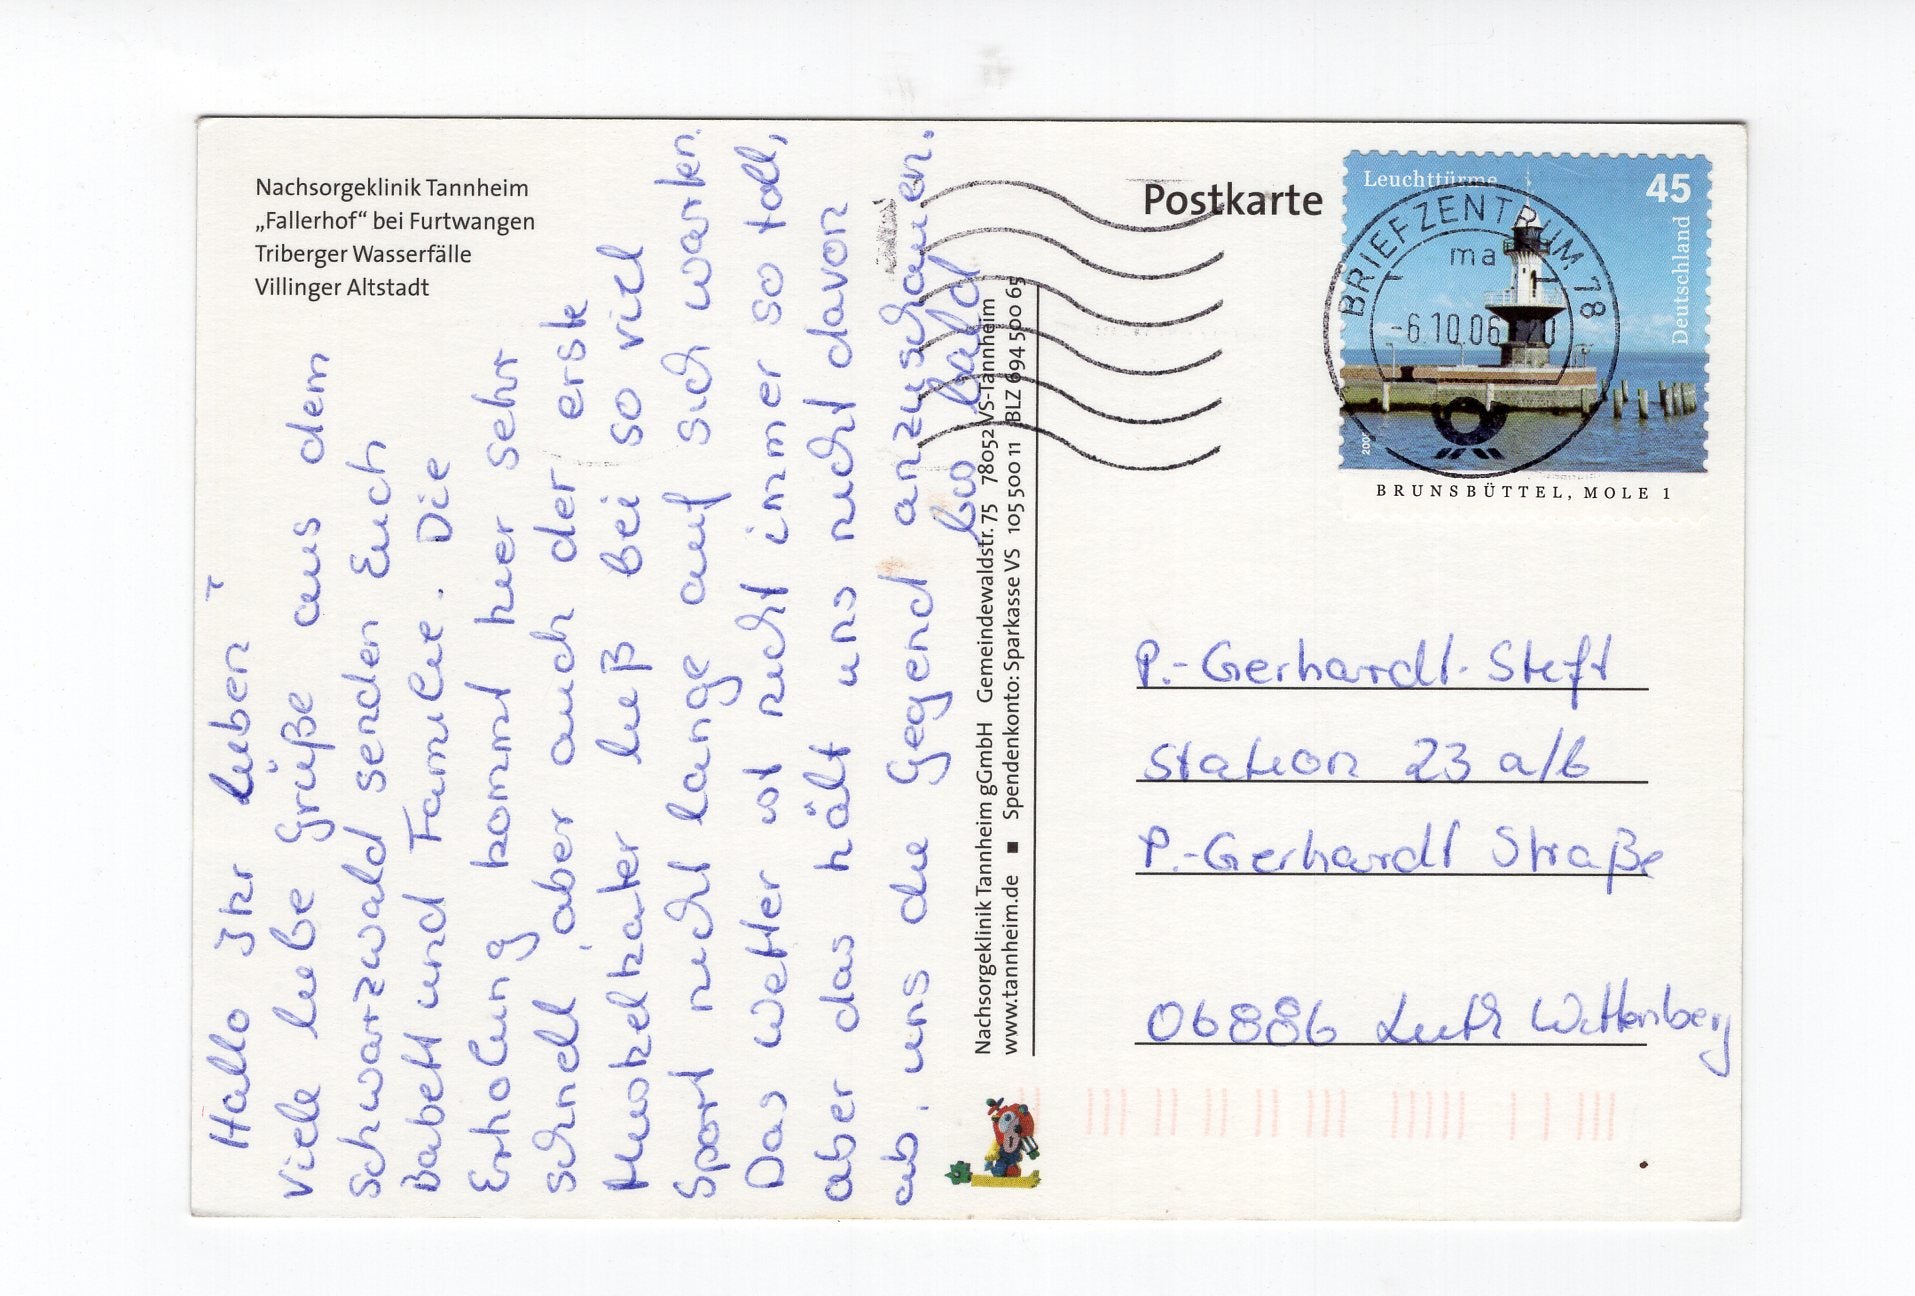 Nachsorgeklinik Tannheim
„Fallerhof“ bei Furtwangen
Triberger Wasserfälle
Villinger Altstadt
Hallo Ihr Lieben
Viele liebe Grüße aus dem
Schwarzwald senden Euch
Babett und Familie. Die
Erholung kommt hier sehr
schnell, aber auch der erste
Muskelkater ließ bei so viel
Sport nicht lange auf sich warten.
Das Wetter ist nicht immer so toll,
aber das hält uns nicht davon
ab, uns die Gegend anzuschauen.
bis bald
Nachsorgeklinik Tannheim gGmbH Gemeindewaldstr. 75 78052 VS-Tannheim
www.tannheim.de ■ Spendenkonto: Sparkasse VS 105 500 11 BLZ 694 500 65
Postkarte
Leuchttürme
45
Deutschland
BRIEFZENTRUM 78
ma
-6.10.06-20
BRUNSBÜTTEL, MOLE 1
P.-Gerhardt-Stift
Station 23 a/b
P.-Gerhardt Straße
06886 Luth Wittenberg